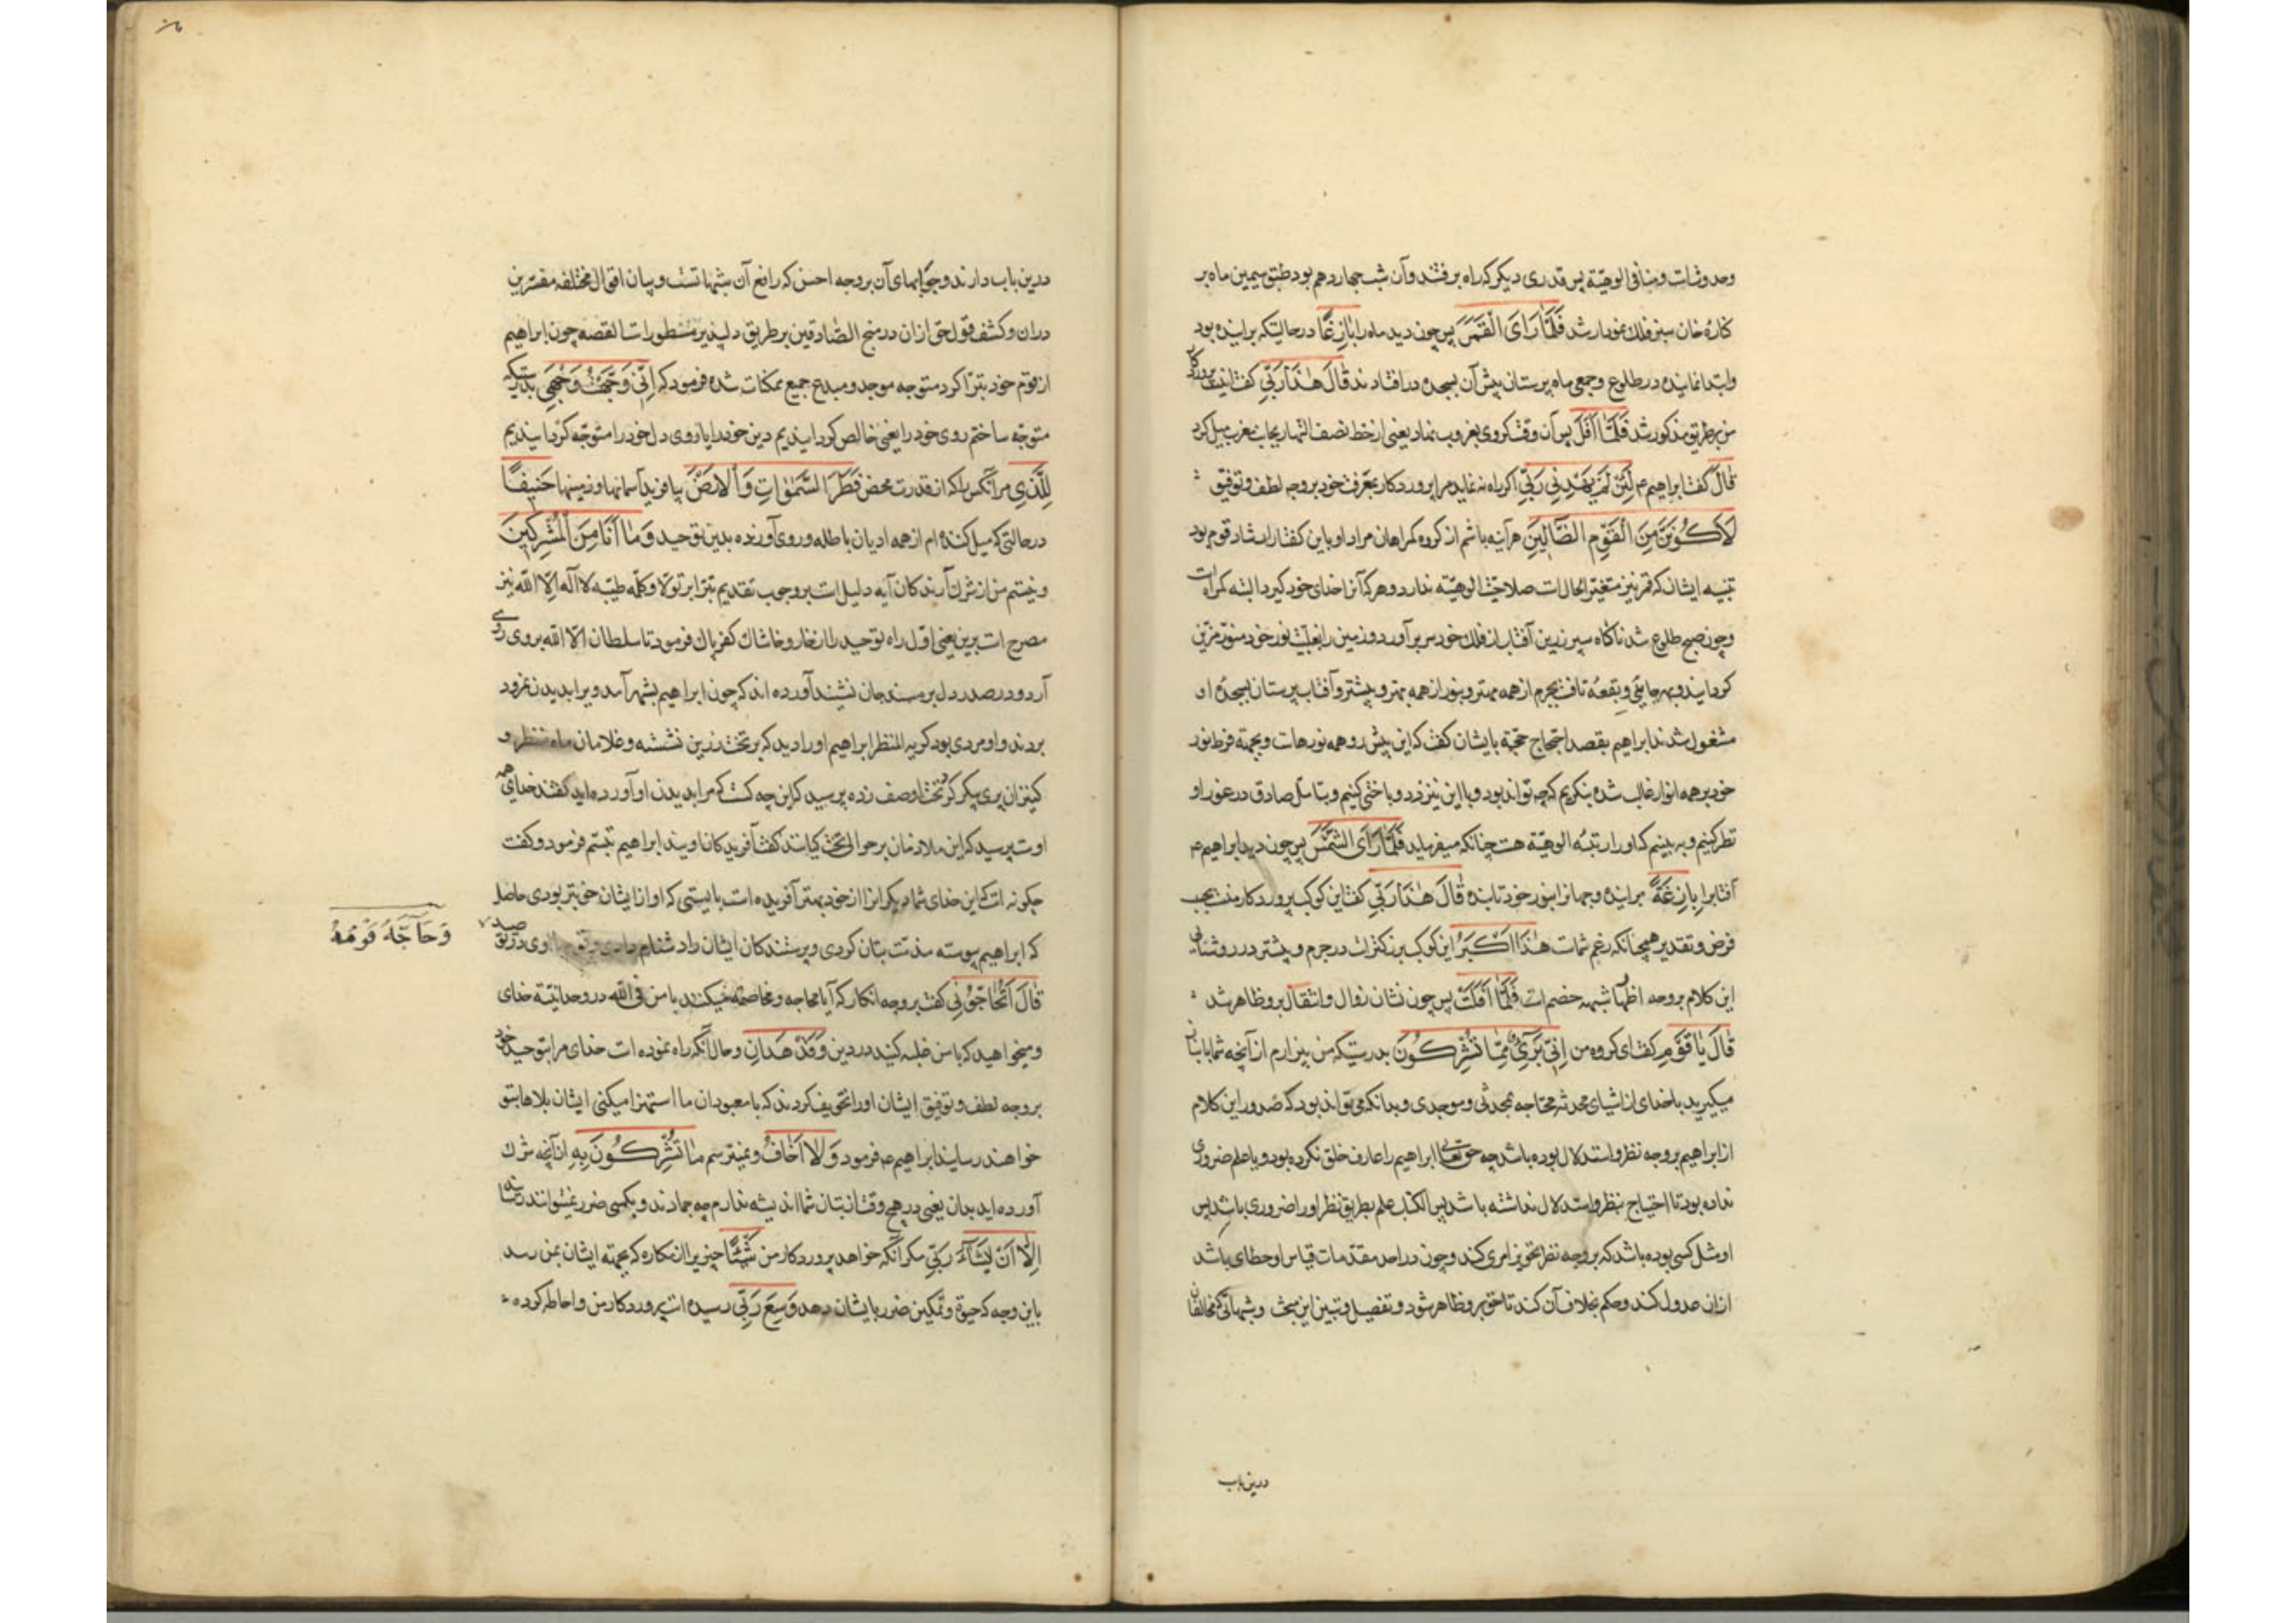 وحدوثات ومنافی الوهیّة پس قدری دیکر که راه برفتند وآن شب چهاردهم بود طبق سیمین ماه بر
کنارهٔ خان سبز فلك نمودار شد فَلَمَّا رَاَی الْقَمَرَ پس چون دید ماه را بَازِغًا درحالیتکه براینده بود
وابتدا نماینده در طلوع وجمعی ماه پرستان پیش آن بسجده درافتادند قَالَ هٰذَا رَبّی کفت اینست پروردکار
من بطریق مذکور شد فَلَمَّا اَفَلَ پس آن وقت که روی بغروب نهاد یعنی از خط نصف النهار بجانب مغرب میل کرد
قَالَ کفت ابراهیم ع لَئِنْ لَمْ یَهْدِنِی رَبّی اکر راه ننماید مرا پروردکار بمعرفت خود بروجه لطف وتوفیق
لَاَکُونَنَّ مِنَ الْقَوْمِ الضَّالِّینَ هرآینه باشم از کروه کمراهان مراد او باین کفتار ارشاد قوم بود
تنبیه ایشان که قمر نیز متغیّر الحال است صلاحیّت الوهیّه ندارد وهر که آنرا خدای خود کیرد البته کمراه است
وچون صبح طلوع شد ناکاه سپر زرین آفتاب از فلك خود سر برآورد وزمین را بغلبت نور خود منوّر مزیّن
کردانید وبهر جایئی وبقعهٔ تافت بجرم از همه مهتر وبنور از همه بهتر وبیشتر وآفتاب پرستان بسجدهٔ او
مشغول شدند ابراهیم بقصد احتجاج حجّة بایشان کفت که این پیش رو همه نورهاست وبجهة فرط نور
خود بر همه انوار غالب شده بنکریم که چه تواند بود وبا این نیز زد وباختی کنیم وبتأمّل صادق در غور او
نظر کنیم وبه بینیم که اورا رتبهٔ الوهیّة هست چنانکه میفرماید فَلَمَّا رَاَی الشَّمْسَ پس چون دید ابراهیم ع
آفتابرا بَازِغَةً براینده وجهانرا بنور خود تابنده قَالَ هٰذَا رَبّی کفت این کوکب پروردکار منست بحسب
فرض وتقدیر همچنانکه زعم شماست هٰذَا اَکْبَرُ این کوکب بزرکتر است در جرم وبیشتر در روشنایی
این کلام بروجه اظهار شبهه خصم است فَلَمَّا اَفَلَتْ پس چون نشان زوال وانتقال برو ظاهر شد
قَالَ یَا قَوْمِ کفت ای کروه من اِنّی بَرِیءٌ مِمَّا تُشْرِکُونَ بدرستیکه من بیزارم از آنچه شما بآن انبازی
میکیرید باخدای از اشیای محدثه محتاجه بمحدثی وموجدی وبدانکه می تواند بود که صدور این کلام
از ابراهیم بروجه نظر واستدلال بوده باشد چه حق تعالی ابراهیم را عارف خلق نکرده بود ویا علم ضروری
نداده بود تا احتیاج بنظر واستدلال نداشته باشد پس اکتساب علم بطریق نظر اورا ضروری باشد پس
او مثل کسی بوده باشد که بروجه نظر تجویز امری کند وچون در احد مقدّمات قیاس او خطای باشد
ازان عدول کند وحکم بخلاف آن کند تا حق برو ظاهر شود وتفصیل وتبیین این مبحث وشبهاتی که مخالفان
درین باب
درین باب دارند وجوابهای آن بروجه احسن که رافع آن شبهاتست وبیان اقوال مختلفه مفسّرین
دران وکشف قول حق ازان در منهج الصّادقین بر طریق دلپذیر مسطور است القصه چون ابراهیم
از قوم خود تبرّا کرد متوجه موجد ومبدع جمیع ممکنات شده فرمود که اِنّی وَجَّهْتُ وَجْهِیَ بدرستیکه
متوجّه ساختم روی خود را یعنی خالص کردانیدیم دین خود را یا روی دل خود را متوجّه کردانیدیم
لِلَّذِی مرآنکس را که از قدرت محض فَطَرَ السَّمٰوَاتِ وَالْاَرْضَ بیافرید آسمانها وزمینها حَنِیفًا
درحالتی که میل کننده ام از همه ادیان باطله وروی آورنده بدین توحید وَمَا اَنَا مِنَ الْمُشْرِکِینَ
ونیستم من از شرك آرندکان آیه دلیل است بر وجوب تقدیم تبرّا بر تولّا وکلمه طیّبه لا اله الّا الله نیز
مصرح است برین یعنی اوّل راه توحید را از خار وخاشاك کفر پاك فرمود تا سلطان الّا الله بروی روی
آرد ودر صدر دل بر مسند جان نشیند آورده اند که چون ابراهیم بشهر آمد ویرا بدیدن نمرود
بردند واو مردی بود کریه المنظر ابراهیم اورا دید که بر تخت زرین نشسته وغلامان ماه منظر و
کنیزان پری پیکر کرد تخت او صف زده پرسید که این چه کست که مرا بدیدن او آورده اید کفتند خدای همه
اوست پرسید که این ملازمان بر حوالی تخت کیانند کفت آفریدکان اویند ابراهیم تبسّم فرمود وکفت
چکونه است که این خدای شما دیکرانرا از خود بهتر آفریده است بایستی که او از ایشان خوبتر بودی حاصل
که ابراهیم پیوسته مذمّت بتان کردی وپرستندکان ایشان را دشنام دادی وقوم با وی در
وَحَاجَّهُ قَوْمُهُ
قَالَ اَتُحَاجُّونِی کفت بروجه انکار که آیا محاجه ومخاصمه میکنید با من فِی الله در وحدانیّة خدای
ومیخواهید که با من غلبه کنید در دین وَقَدْ هَدَانِ وحال آنکه راه نموده است خدای مرا بتوحید خود
بروجه لطف وتوفیق ایشان اورا تخویف کردند که با معبودان ما استهزا میکنی ایشان بلاها بتو
خواهند رسانید ابراهیم ع فرمود وَلَا اَخَافُ ونمیترسم مَا تُشْرِکُونَ بِهِ از آنچه شرك
آورده اید بدان یعنی در هیچ وقت از بتان شما اندیشه ندارم چه جمادند وبکسی ضرر نمیتوانند رسانید
اِلَّا اَنْ یَشَآءَ رَبّی مکر آنکه خواهد پروردکار من شَیْئًا چیزیرا از مکاره که بجهته ایشان بمن رسد
باین وجه که حیوة وتمکین ضرر بایشان دهد وَسِعَ رَبّی رسیده است پروردکار من واحاطه کرده